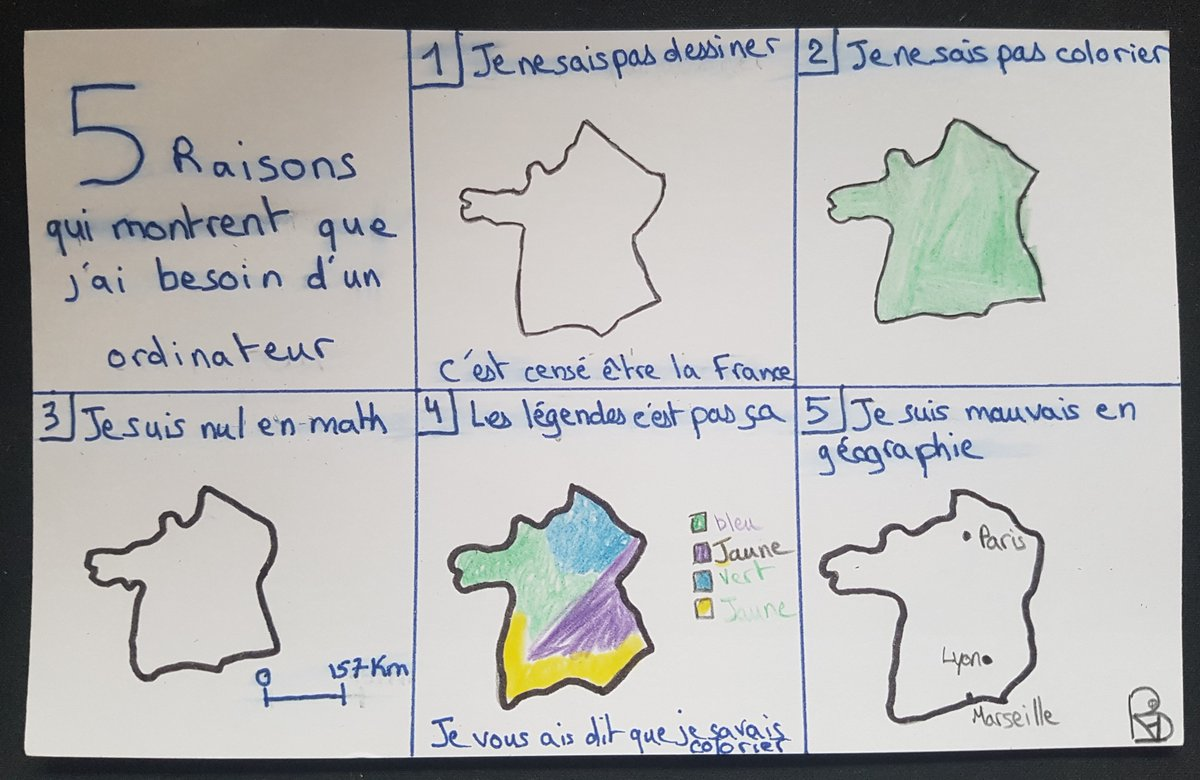 5 Raisons
qui montrent que
j'ai besoin d'un
ordinateur
1 Je ne sais pas dessiner
c'est censé être la France
2 Je ne sais pas colorier
3 Je suis nul en math
0 157 Km
4 Les légendes c'est pas ça
bleu
Jaune
vert
Jaune
Je vous ais dit que je savais
colorier
5 Je suis mauvais en
géographie
Paris
Lyon
Marseille